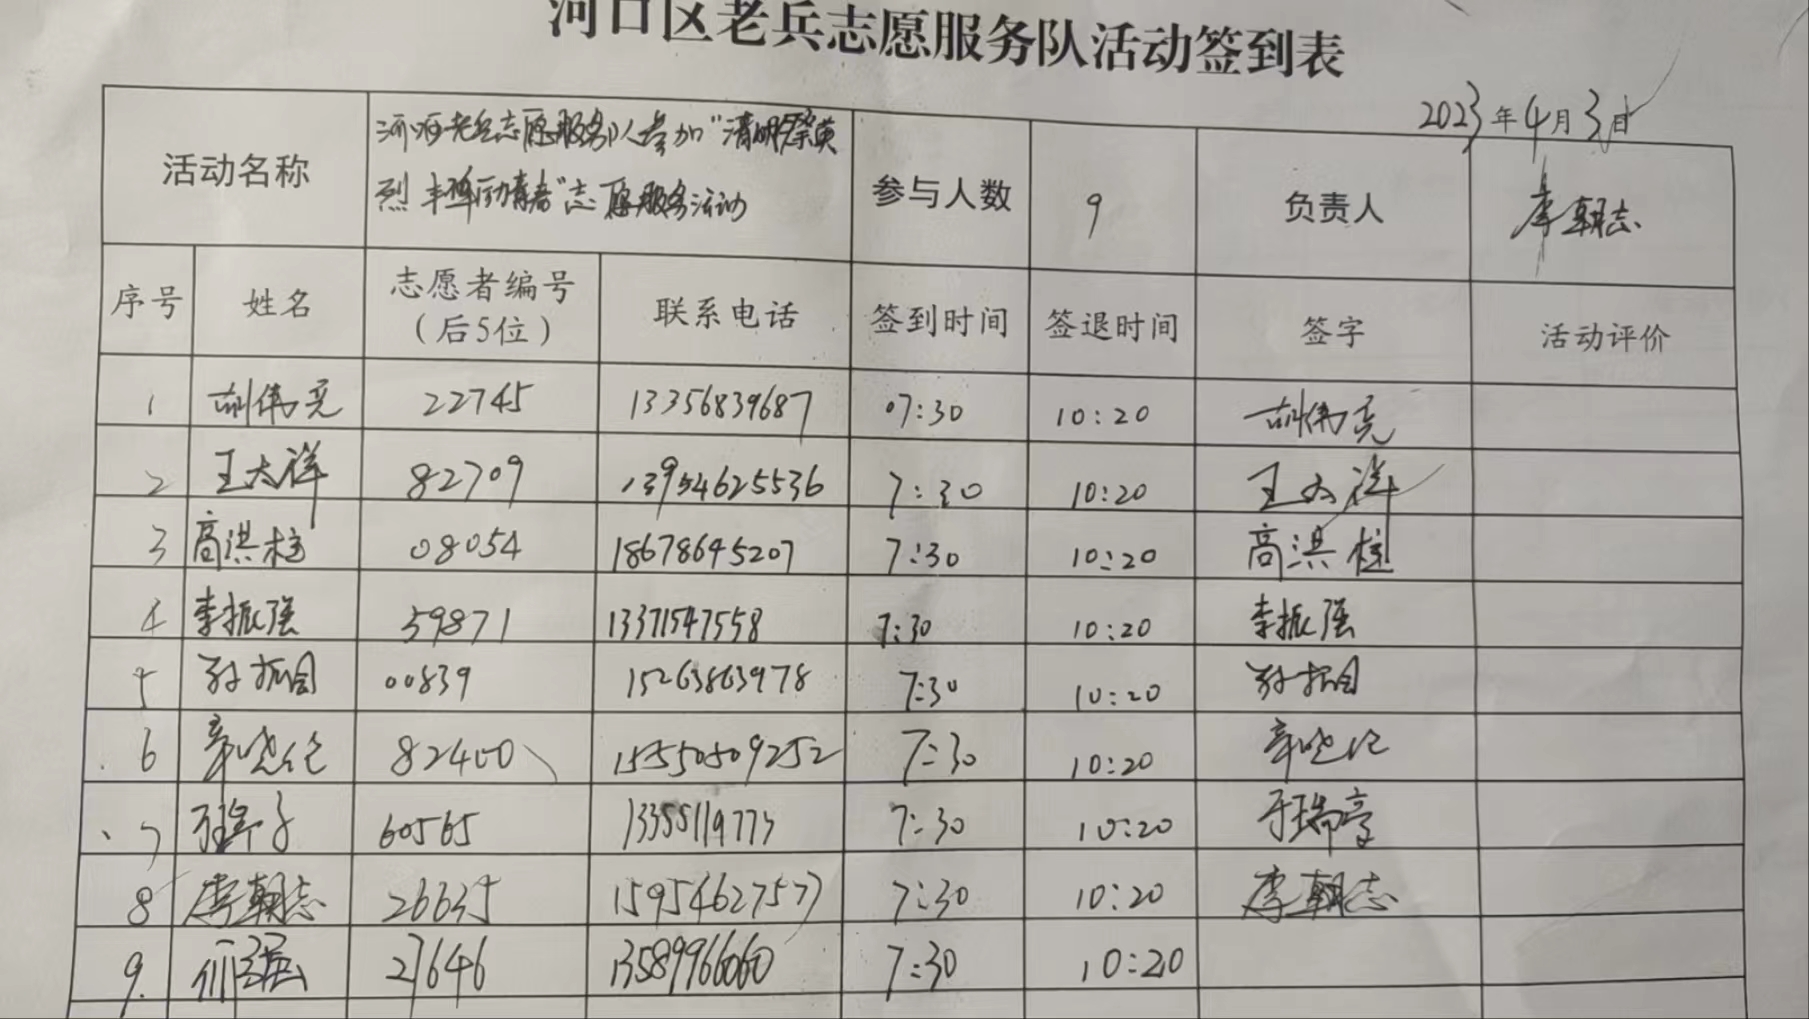 河口区老兵志愿服务队活动签到表
2023年4月3日
活动名称 河口区老兵志愿服务队参加"清明祭英 参与人数 9 负责人 李朝志
烈 志愿服务活动
序号 姓名 志愿者编号 联系电话 签到时间 签退时间 签字 活动评价
(后5位)
1 胡伟亮 22745 13356839687 07:30 10:20 胡伟亮
2 王大祥 82709 13954625536 7:30 10:20 王大祥
3 高洪柱 08054 18678645207 7:30 10:20 高洪柱
4 李振强 59871 13371547558 7:30 10:20 李振强
5 孙振国 00839 15263863978 7:30 10:20 孙振国
6 82400 15550509252 7:30 10:20
7 60565 13355119773 7:30 10:20 于瑞亭
8 李朝志 26635 15954627577 7:30 10:20 李朝志
9. 27646 13589966060 7:30 10:20